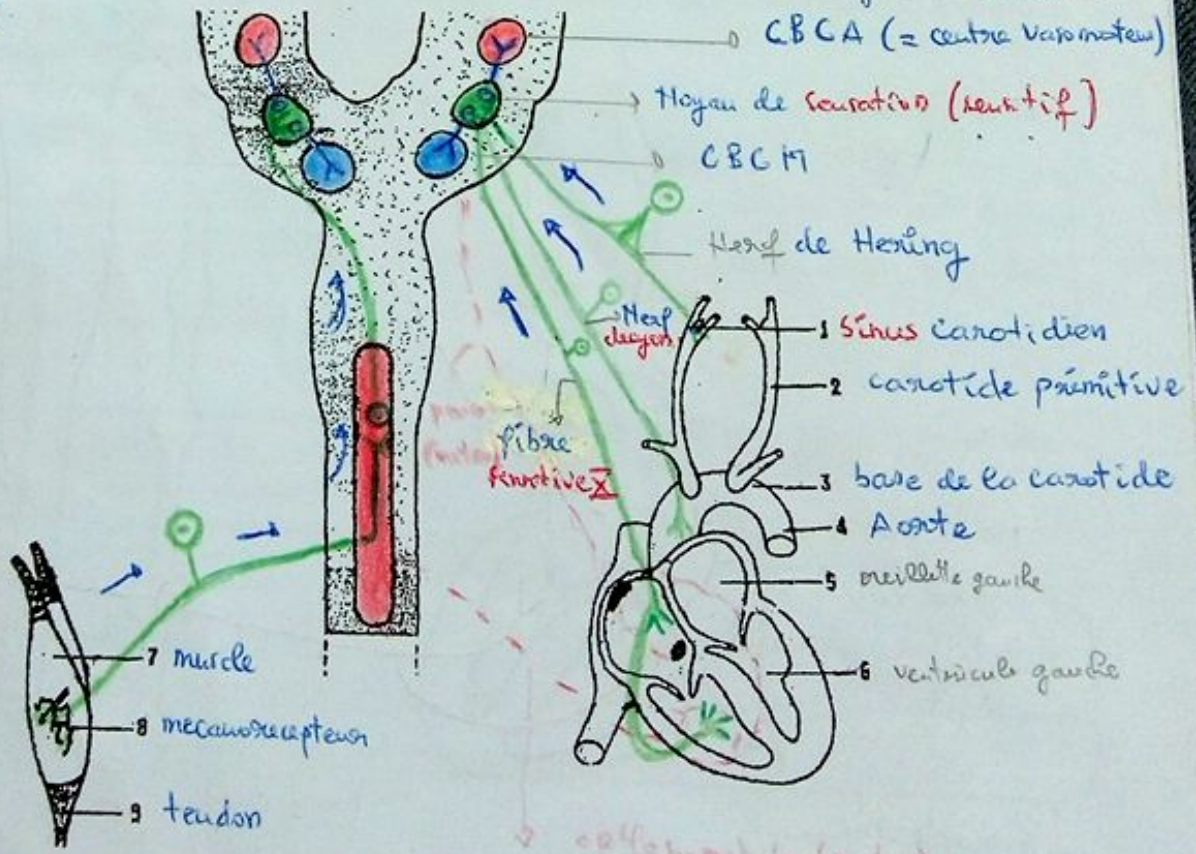 CBCA (= centre vasomoteur)
Noyau de sensation (sensitif)
CBCM
Nerf de Hering
Nerf
de cyon
1 Sinus carotidien
2 carotide primitive
fibre
sensitive X
3 base de la carotide
4 Aorte
5 oreillette gauche
6 ventricule gauche
7 muscle
8 mecanorecepteur
9 tendon